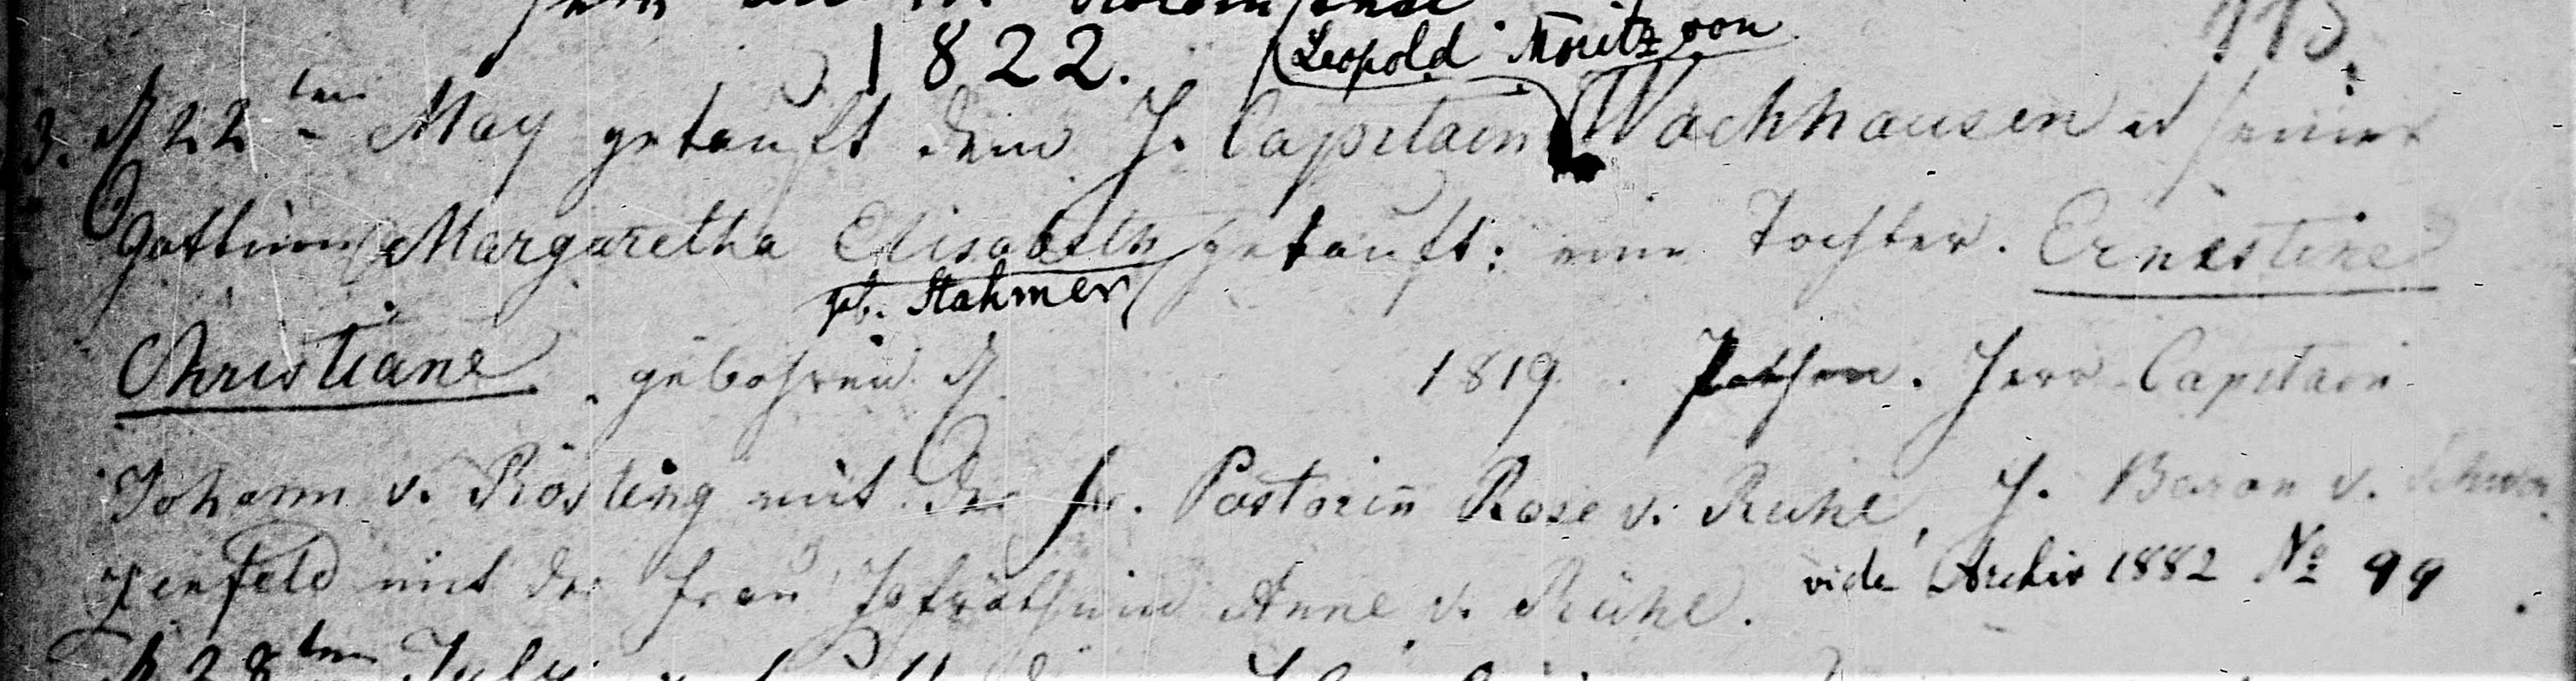 1822. Leopold Moritz von 113.
3. d 22ten May getauft dem H. Capitain Wachhausen u seiner
Gattinn Margaretha Elisabeth getauft: eine Tochter. Ernestine
geb. Stahmer
Christiane, gebohren d 1819. Pathen. Herr Capitain
Johann v. Rösting mit der Fr. Pastorin Rose v. Rühl, H. Baron v.
zenfeld mit der Frau Hofräthinn Anne v. Rühl. vide Archiv 1882 No 99
d 28ten July